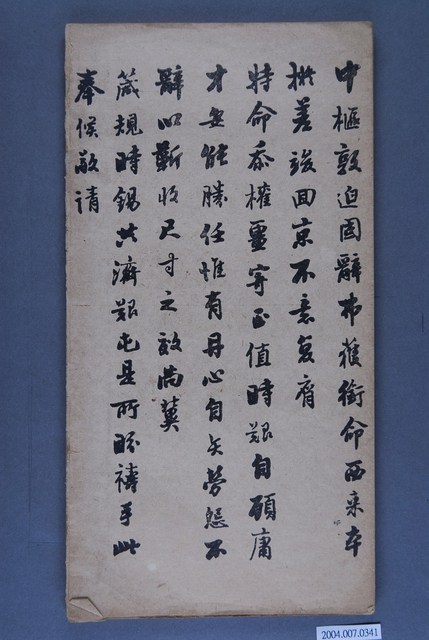 中樞敦迫固辭弗獲銜命西來卒
撚差竣回京不意復膺
特命忝權畺寄正值時艱自顧庸
才安能勝任惟有丹心自矢勞怨不
辭以蘄收尺寸之效尚冀
箴規時錫共濟艱屯是所盼禱手此
奉候敬請
2004.007.0341